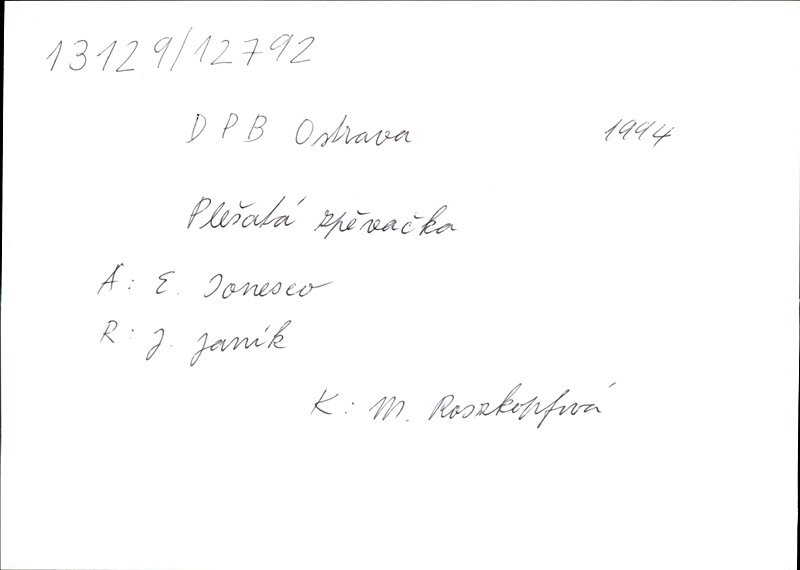 13129/12792
DPB Ostrava 1994
Plešatá zpěvačka
A: E. Ionesco
R: J. Janík
K: M. Roszkopfová